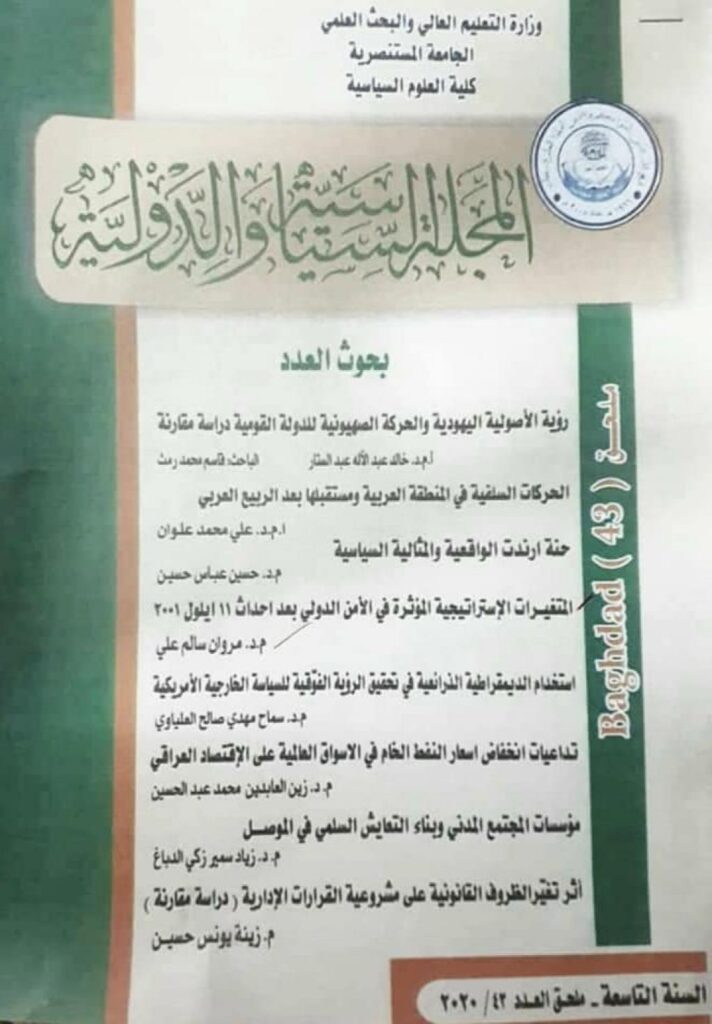 وزارة التعليم العالي والبحث العلمي
الجامعة المستنصرية
كلية العلوم السياسية
المجلة السياسية والدولية
بحوث العدد
رؤية الأصولية اليهودية والحركة الصهيونية للدولة القومية دراسة مقارنة
أ.م.د. خالد عبد الأله عبد الستار الباحث: قاسم محمد رمث
الحركات السلفية في المنطقة العربية ومستقبلها بعد الربيع العربي
ا.م.د. علي محمد علوان
حنة ارندت الواقعية والمثالية السياسية
م.د. حسين عباس حسين
المتغيرات الإستراتيجية المؤثرة في الأمن الدولي بعد احداث ١١ ايلول ٢٠٠١
م.د. مروان سالم علي
استخدام الديمقراطية الذرائعية في تحقيق الرؤية الفوقية للسياسة الخارجية الأمريكية
م.د. سماح مهدي صالح العلياوي
تداعيات انخفاض اسعار النفط الخام في الاسواق العالمية على الإقتصاد العراقي
م. د. زين العابدين محمد عبد الحسين
مؤسسات المجتمع المدني وبناء التعايش السلمي في الموصل
م. د. زياد سمير زكي الدباغ
أثر تغيّر الظروف القانونية على مشروعية القرارات الإدارية ( دراسة مقارنة )
م. زينة يونس حسين
ملحق ( 43 ) Baghdad
السنة التاسعة ـ ملحق العدد ٤٣ / ٢٠٢٠